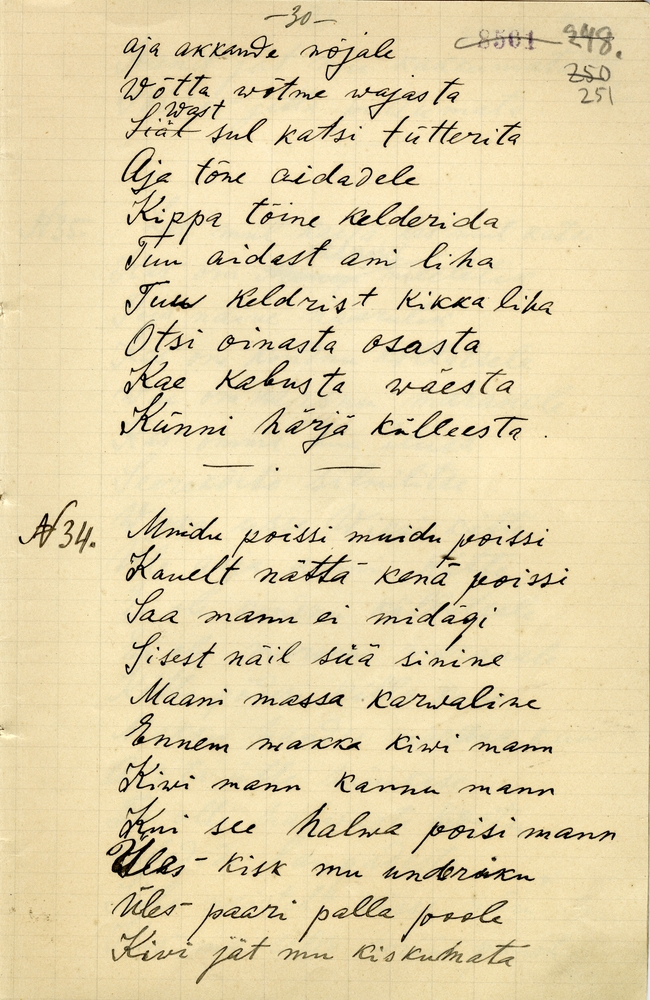 -30-
8561 248.
250
251
aja akkande nõjale
Wõtta wõtme wajasta
wast
Siät sul katsi tütterita
Aja tõne aidadele
Kippa tõine kelderida
Tuu aidast ani liha
Tuu keldrist kikka liha
Otsi oinasta osasta
Kae kabusta wäesta
Künni härjä külleesta.
N 34. Muidu poissi muidu poissi
Kauelt nättä kenä poissi
Saa mann ei midägi
Sisest näil süä sinine
Maani massa karwaline
Ennem makka kiwi mann
Kiwi mann kannu mann
Kui see halwa poisi mann
Üles kisk mu undruku
Üles paari palla poole
Kivi jät mu kiskumata